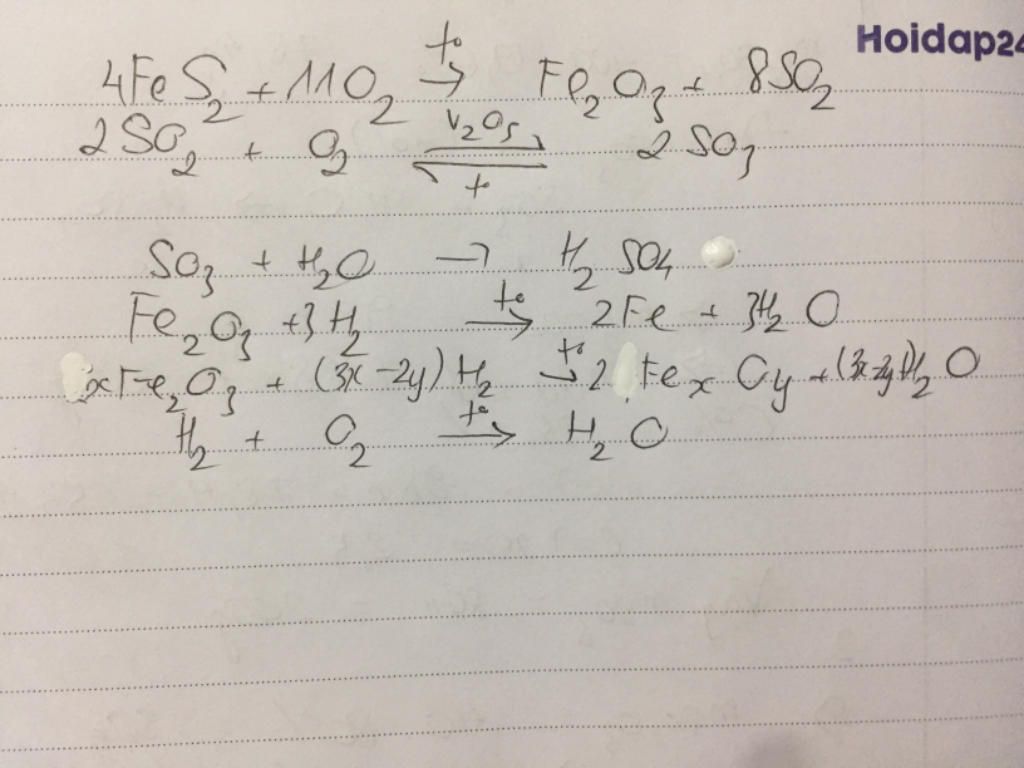 Hoidap24
4FeS₂ + 11O₂ t° → Fe₂O₃ + 8SO₂
2SO₂ + O₂ V₂O₅ ⇌ t° 2SO₃
SO₃ + H₂O → H₂SO₄
Fe₂O₃ + 3H₂ t° → 2Fe + 3H₂O
xFe₂O₃ + (3x-2y)H₂ t° → 2FeₓOy + (3x-2y)H₂O
H₂ + O₂ t° → H₂O